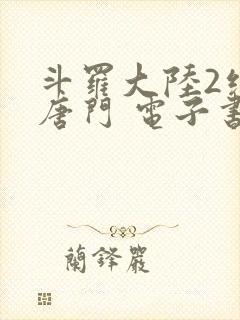 斗羅大陸2絕
唐門 電子書
蘭鋒嚴